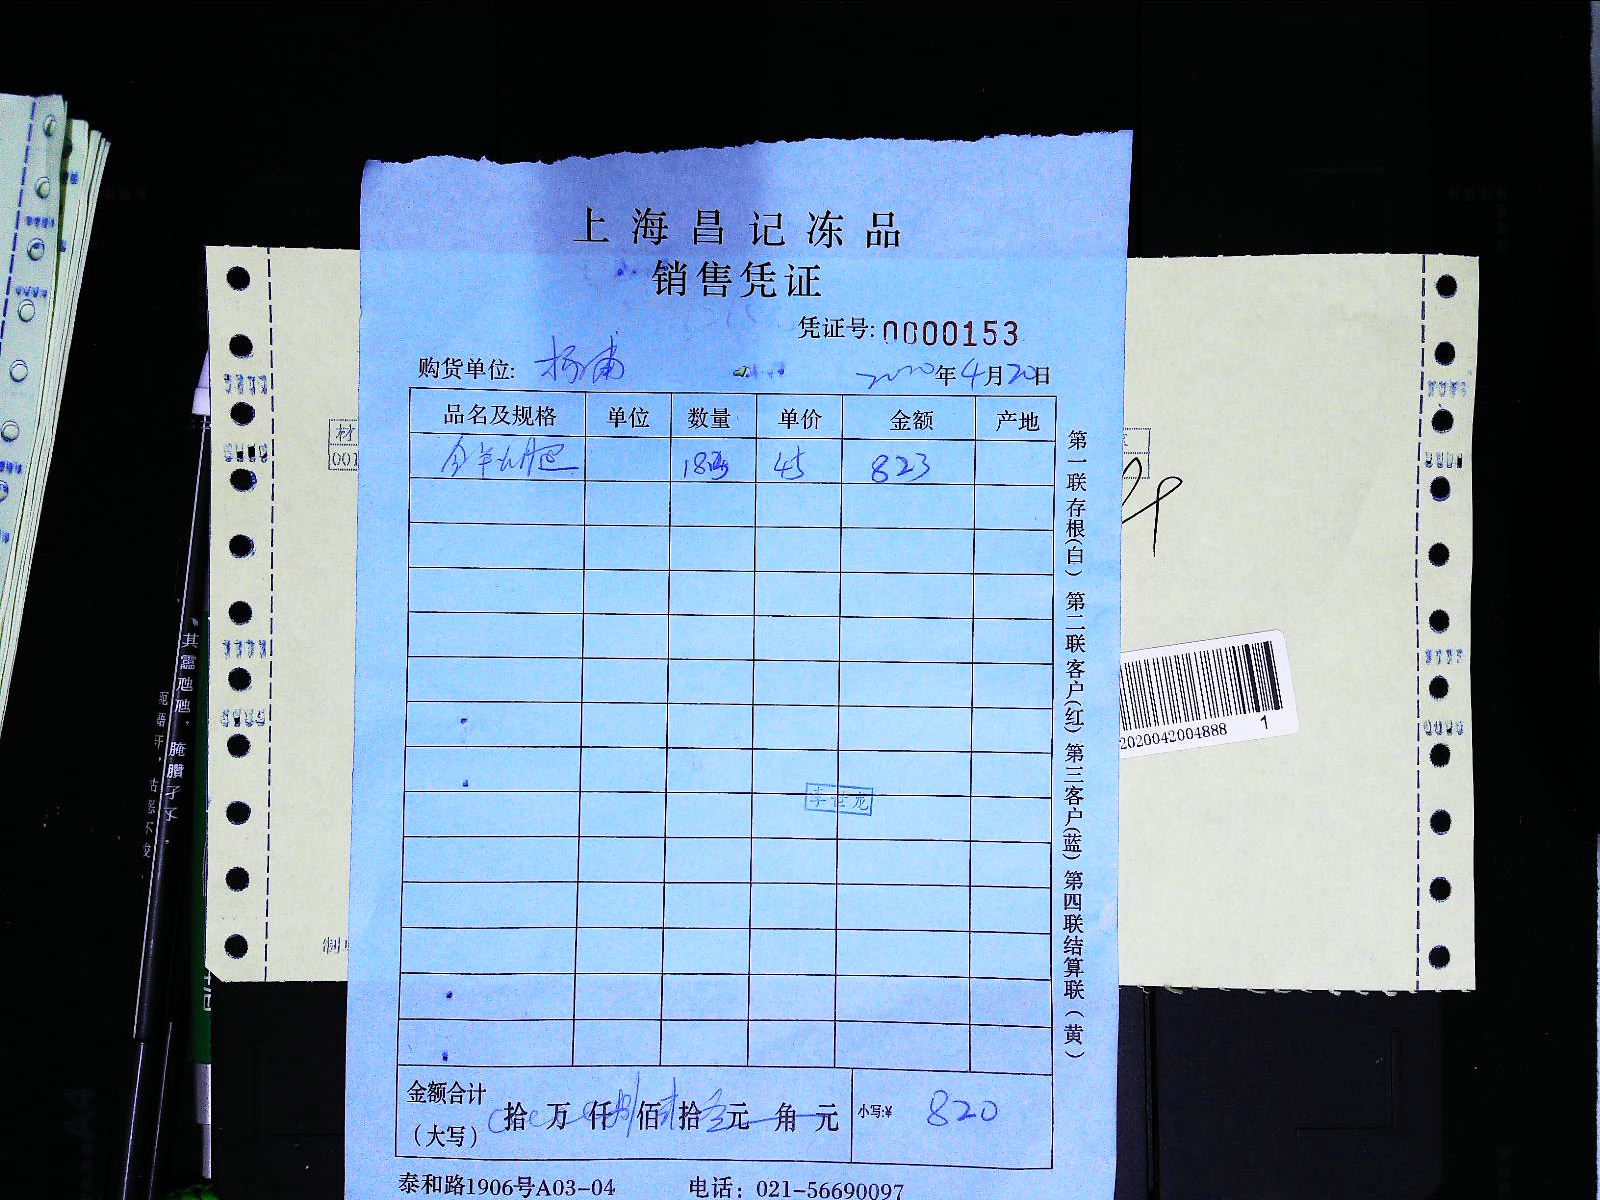 上海昌记冻品
销售凭证
凭证号:0000153
购货单位: 杨浦 2020年4月20日
品名及规格 单位 数量 单价 金额 产地
45 823
金额合计
(大写) 拾 万 仟 捌 佰 贰 拾 元 角 元 小写:¥ 820
泰和路1906号A03-04 电话: 021-56690097
第一联存根(白) 第二联客户(红) 第三客户(蓝) 第四联结算联(黄)
李世龙
材
001
制
2020042004888 1